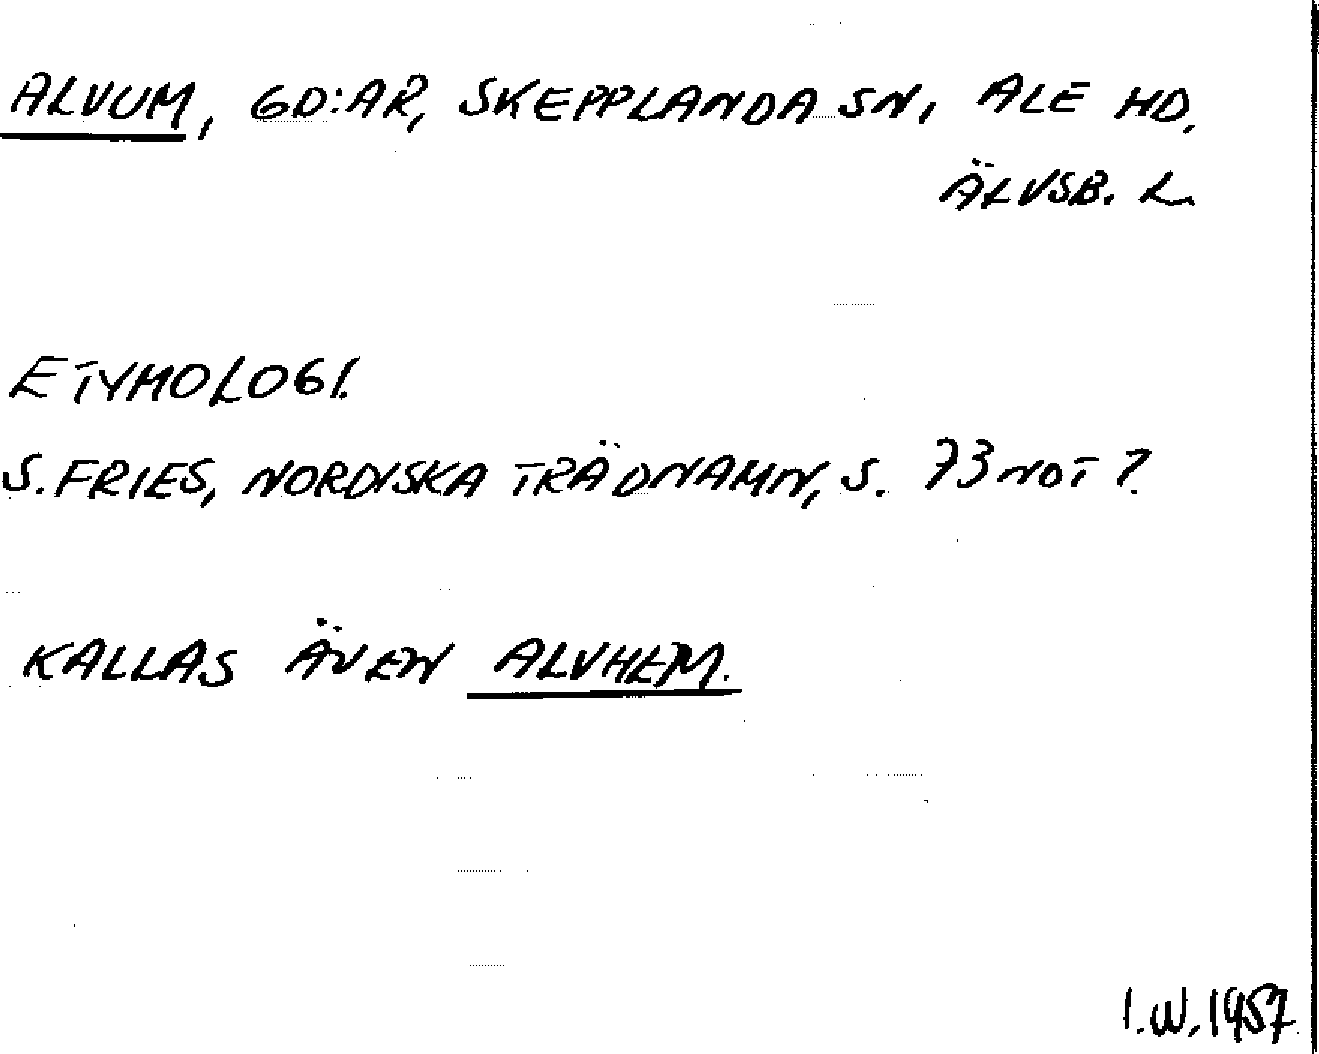 ALVUM, GD:AR, SKEPPLANDA SN, ALE HD.
ÄLVSB. L.
ETYMOLOGI.
S. FRIES, NORDISKA TRÄDNAMN, S. 73 NOT 7.
KALLAS ÄVEN ALVHEM.
I.W. 1957